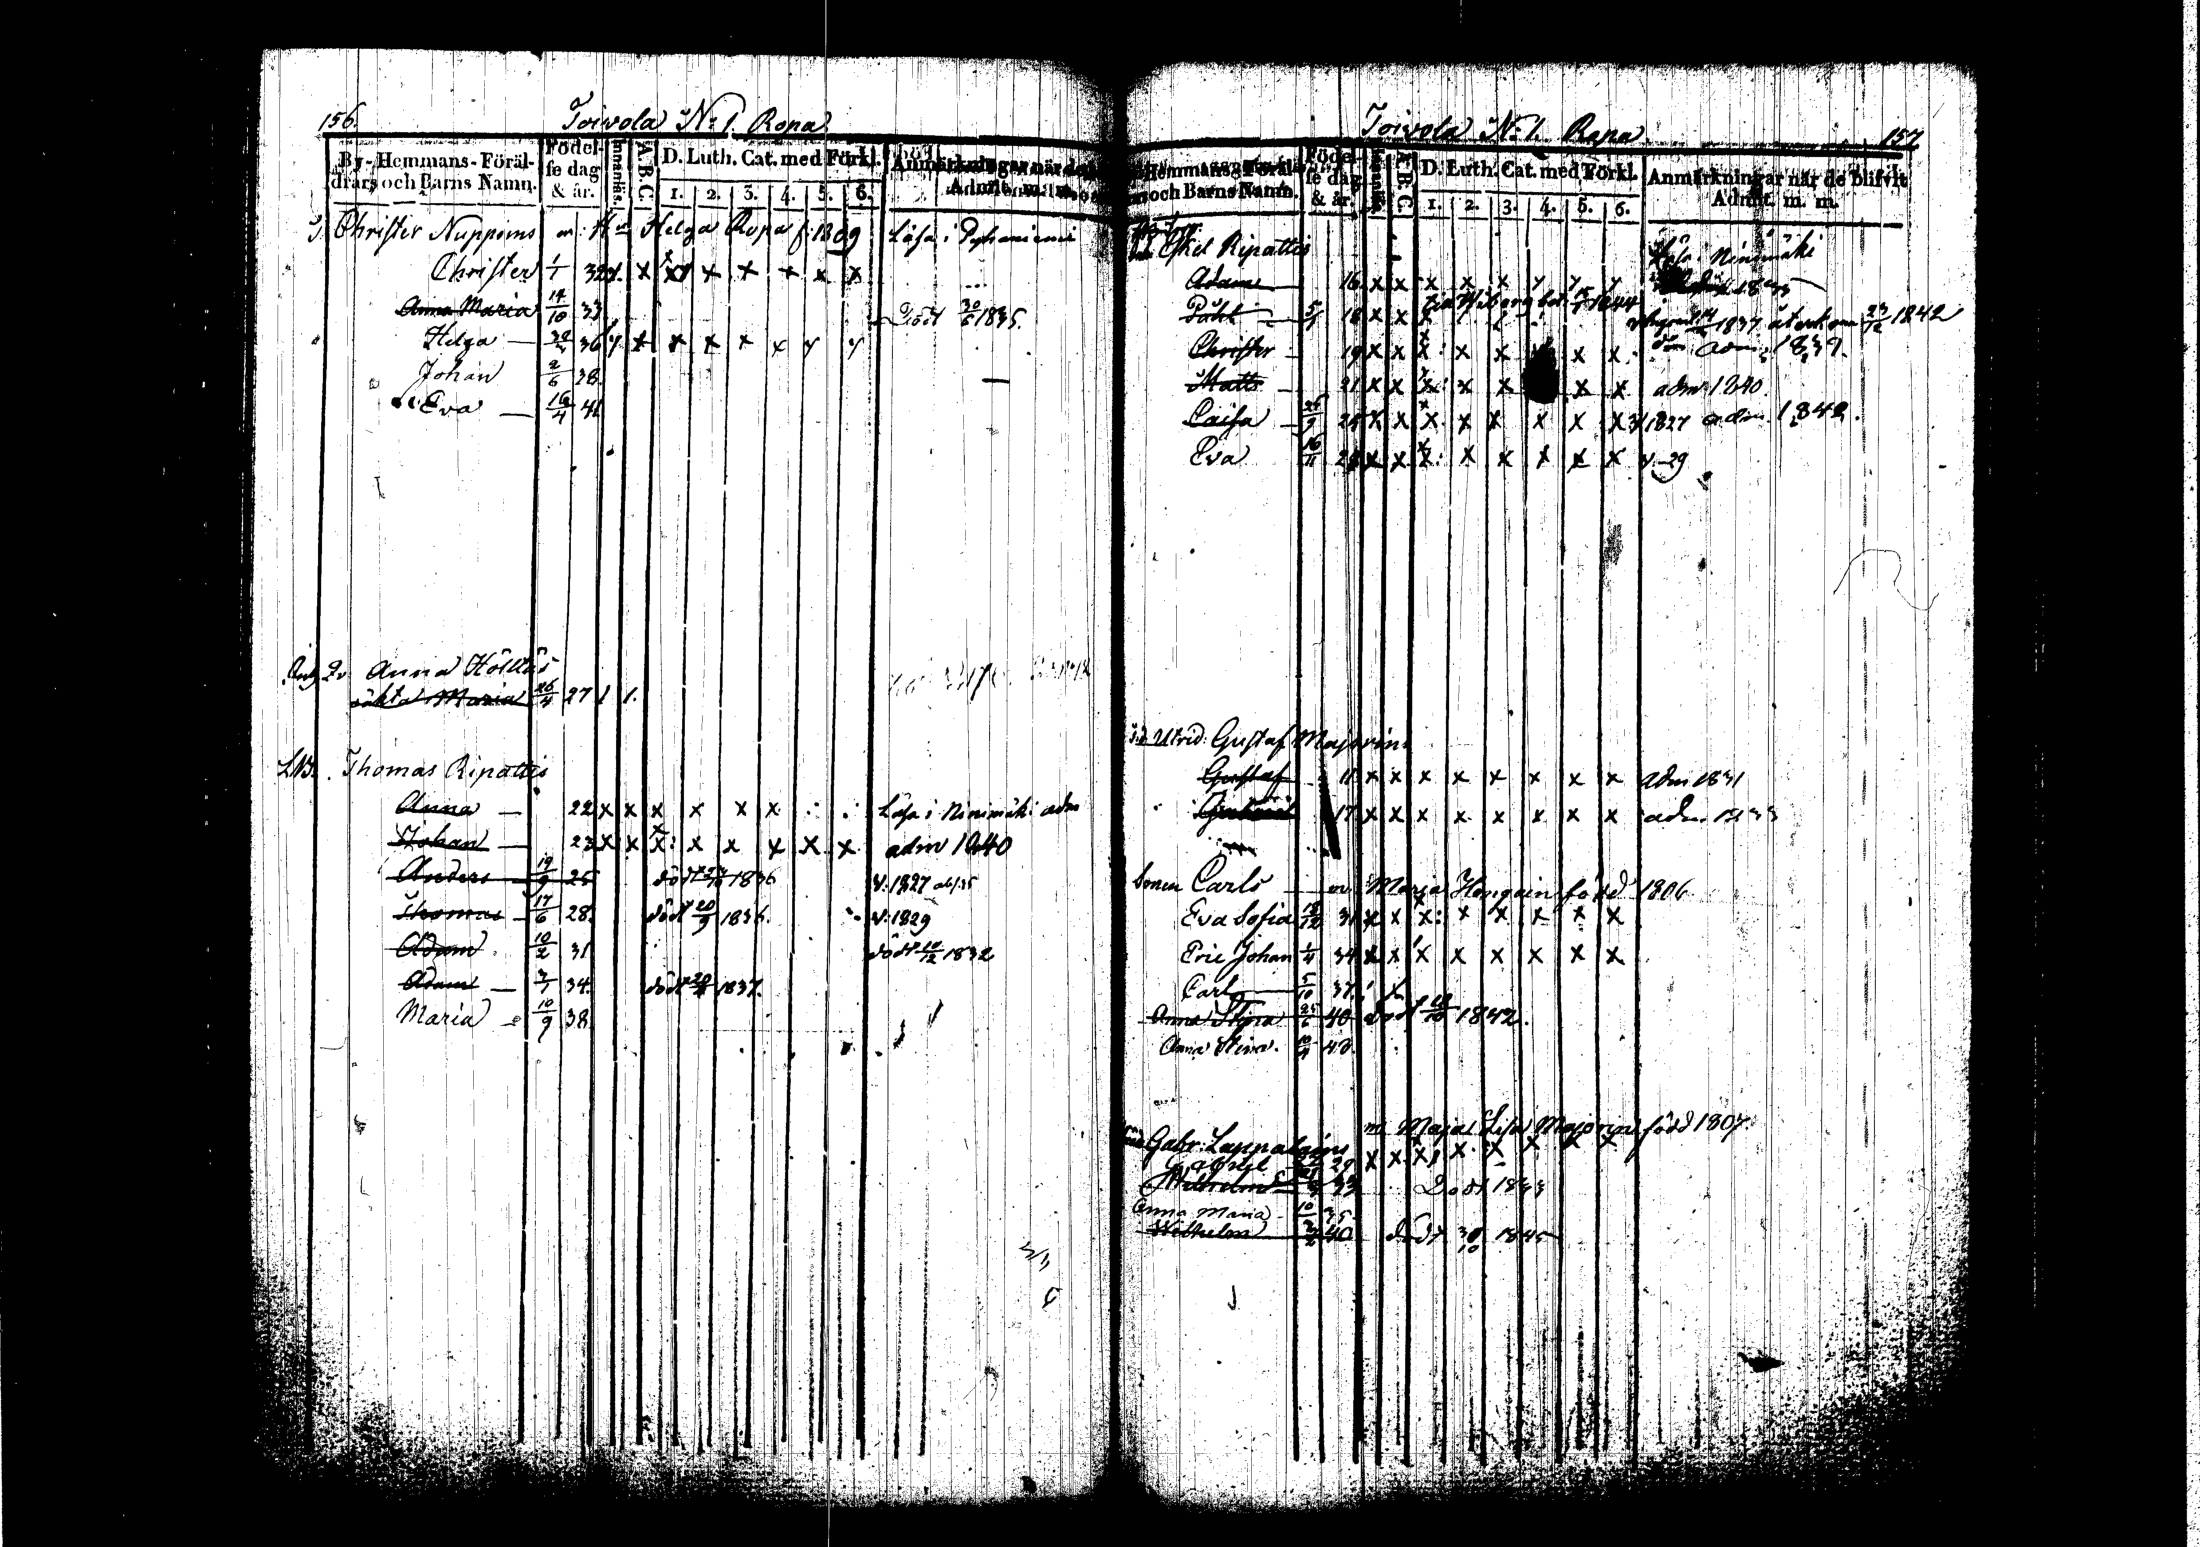 156.
Toivola N:1 Ropa
By- Hemmans- Föräl-
drars och Barns Namn.
Födel-
se dag
& år.
Innanläs.
A. B. C.
D. Luth. Cat. med Förkl.
1. 2. 3. 4. 5. 6.
Anmärkningar när de
Admit. m. m.
Christer Nuppoins Helga Ropa f: 1809 Läsa i Pyhäniemi
Christer 1/1 32 x x x x x x x
Anna Maria 14/10 33 Död 30/6 1835.
Helga 36 x x x x x
Johan 2/6 38
Eva 16/4 41
Anna Hölttäs
oäkta Maria 26/4 27 1 1.
Thomas Ripattis
Anna 22 x x x x x x Läsa i Ninimäki adm
Johan 23 x x x: x x x x x adm 1840
Anders 19/9 25 död 1836 v: 1827
Thomas 17/6 28 död 20/9 1836. v: 1829
Adam 10/2 31 död 1832
Adam 3/1 34. död 1837.
Maria 10/9 38
Toivola N:1. Ropa 157
Hemmans- Föräl-
och Barns Namn.
Födel-
se dag
& år.
A. B. C.
D. Luth. Cat. med Förkl.
1. 2. 3. 4. 5. 6.
Anmärkningar när de blifvit
Admit. m. m.
Eskel Ripattis Läsa i Ninimäki
Adam 16 x x x x x
18 x x 1837 återkom 23/12 1842
Christer 19 x x x: x x x x adm: 1839.
Matts 21 x x x: x x x x adm 1840.
Caisa x x x x x x x 1827 adm. 1842.
Eva 16/11 x x x: x x x x x v. 29
Gustaf Majorin
Gustaf 11 x x x x x x x x adm 1831
17 x x x x x x x x adm. 1833
Sonen Carls Maria Honqain född 1806
Eva Sofia 31 x x x: x x x x x
Eric Johan 1/4 34 x x x x x x x x
Carl 5/10 37.
Anna Stina 25/6 40 död 1842.
Anna Stina. 10/4 43.
m Maja Lisa Majorin född 1807
Gabr: Lappalains
Gabriel 29 x x x x x x x
Wilhelm 33 Död 1833
Anna Maria 10/2 35
Wilhelm 40 död 30/10 1845